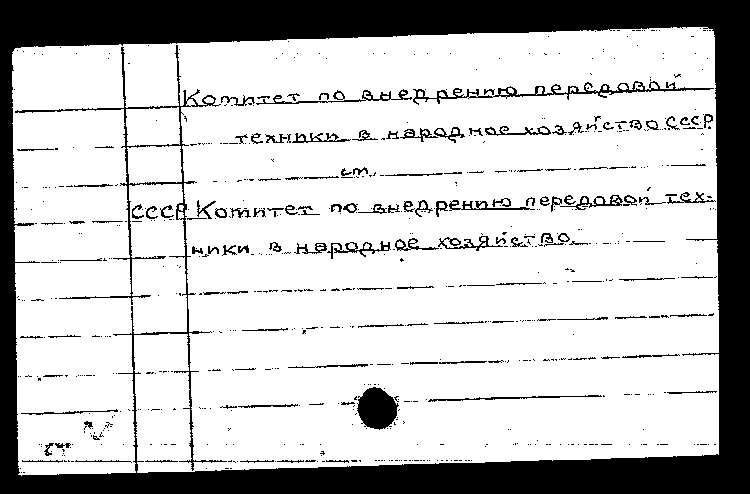 Комитет по внедрению передовой
техники в народное хозяйство СССР
см.
СССР Комитет по внедрению передовой тех-
ники в народное хозяйство.
ст